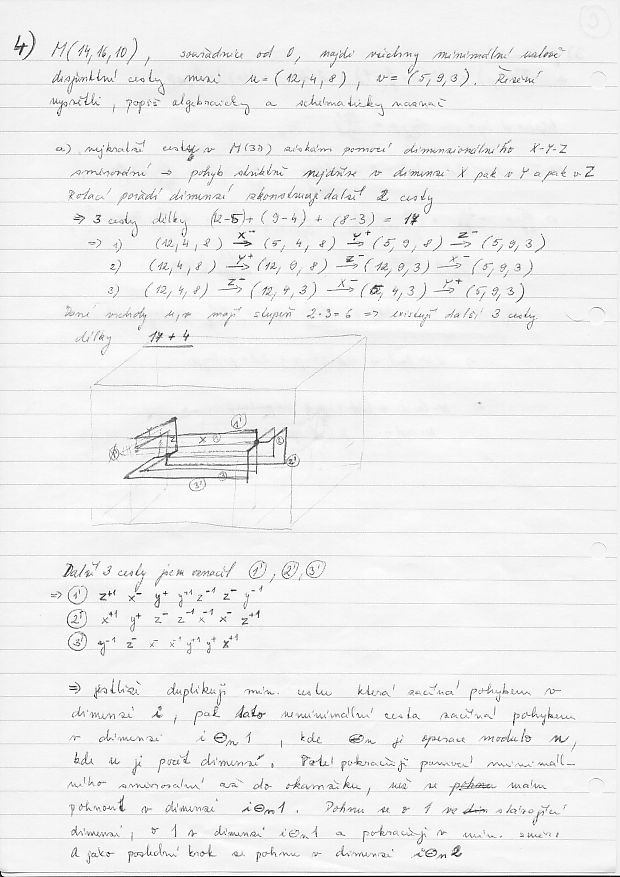 4) M(14,16,10), souřadnice od 0, najdi všechny minimální uzlově
disjunktní cesty mezi u=(12,4,8), v=(5,9,3). Řešení
vysvětli, popiš algebraicky a schématicky naznač
a) nejkratší cesty v M(3D) získám pomocí dimenzionálního X-Y-Z
směrování → pohyb striktně nejdříve v dimenzi X pak v Y a pak v Z
Rotací pořadí dimenzí zkonstruuji další 2 cesty
⇒ 3 cesty délky (12-5)+(9-4)+(8-3) = 17
⇒ 1) (12,4,8) X⁻→ (5,4,8) Y⁺→ (5,9,8) Z⁻→ (5,9,3)
2) (12,4,8) Y⁺→ (12,9,8) Z⁻→ (12,9,3) X⁻→ (5,9,3)
3) (12,4,8) Z⁻→ (12,4,3) X⁻→ (5,4,3) Y⁺→ (5,9,3)
vrcholy u,v mají stupeň 2·3=6 ⇒ existují další 3 cesty
délky 17+4
1'
X
Z
2'
3'
Další 3 cesty jsem označil 1', 2', 3'
⇒ 1' z⁺¹ x⁻ y⁺ y⁺¹ z⁻¹ z⁻ y⁻¹
2' x⁺¹ y⁺ z⁻ z⁻¹ x⁻¹ x⁻ z⁺¹
3' y⁻¹ z⁻ x⁻ x⁻¹ y⁺¹ y⁺ x⁺¹
⇒ jestliže duplikuji min. cestu která začíná pohybem v
dimenzi i, pak tato neminimální cesta začíná pohybem
v dimenzi i ⊖n 1, kde ⊖n je operace modulo n,
kde n je počet dimenzí. Poté pokračuji pomocí minimál-
ního směrování až do okamžiku, než se mám
pohnout v dimenzi i⊖n1. Pohnu se o 1 ve stávající
dimenzi, o 1 v dimenzi i⊖n1 a pokračuji v min. směr.
A jako poslední krok se pohnu v dimenzi i⊖n2